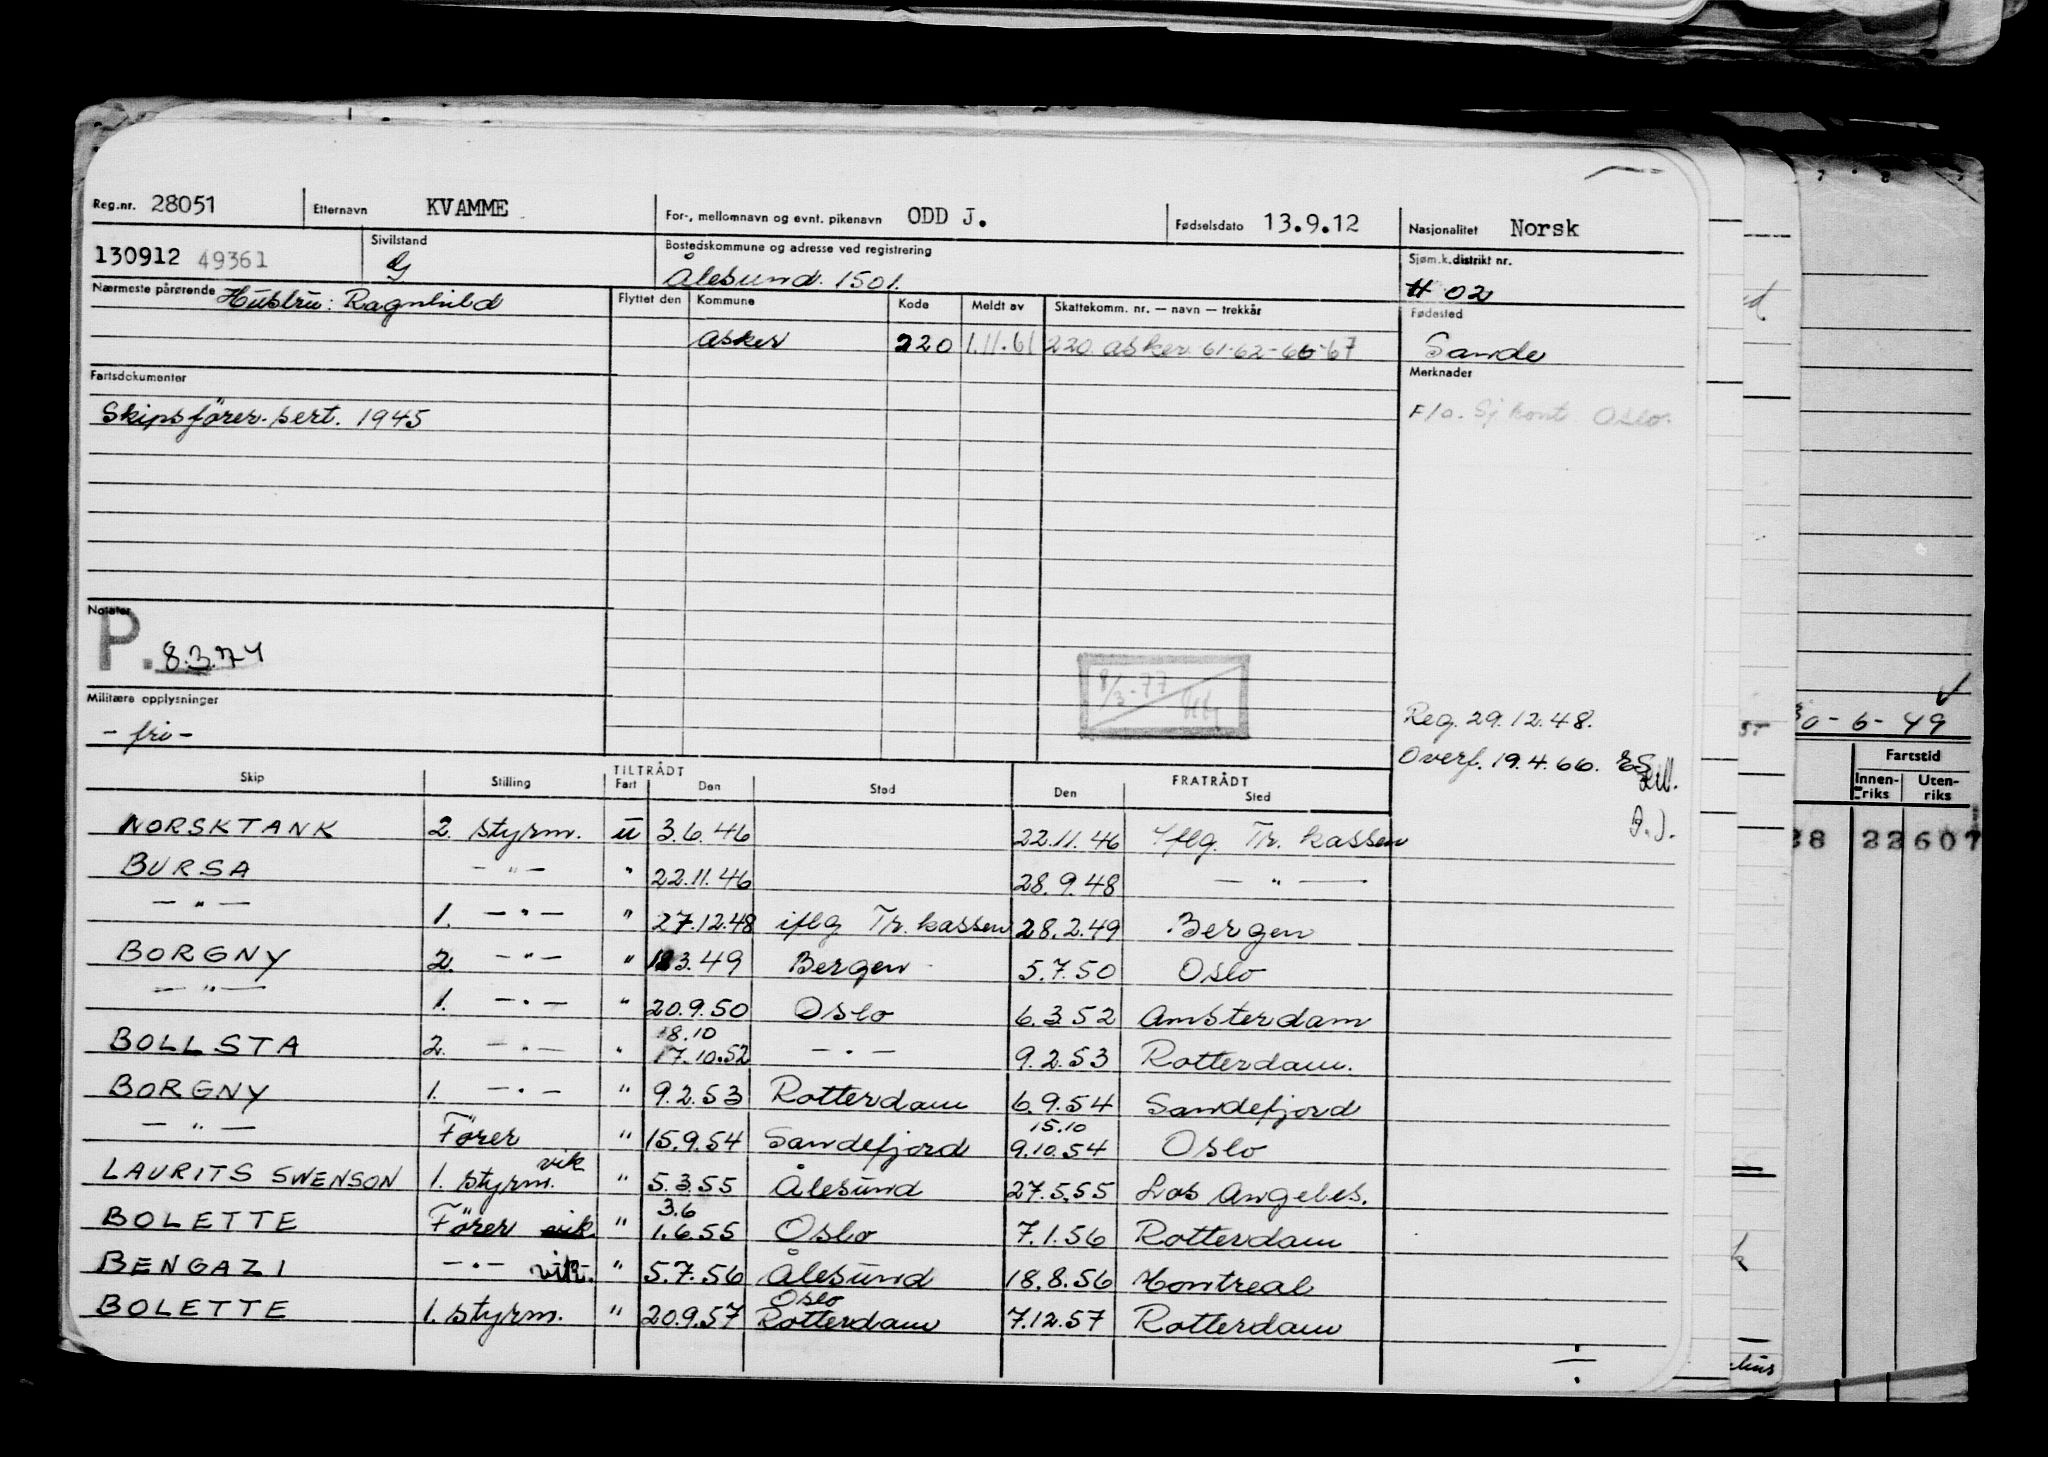 Reg.nr. 28051 Etternavn KVAMME For-, mellomnavn og evnt. pikenavn ODD J. Fødselsdato 13.9.12 Nasjonalitet Norsk
130912 49361 Sivilstand G Bostedskommune og adresse ved registrering Ålesund. 1501. Sjøm.k.distrikt nr. 02
Nærmeste pårørende Hustru: Ragnhild Flyttet den Kommune Kode Meldt av Skattekomm. nr. — navn — trekkår Fødested
Asker 220 1.11.61 220 Asker 61-62-66-67 Sande
Fartsdokumenter Merknader
Skipsfører-sert. 1945 F/o. Sj kont. Oslo.
Notater
P. 8.3.74
8/3-77
Militære opplysninger
-fri-
Reg. 29.12.48.
Overf. 19.4.66. ES
Skip Stilling TILTRÅDT Fart Den Sted FRATRÅDT Den Sted
NORSKTANK 2. styrm. u 3.6.46 22.11.46 iflg. Tr. kassen
BURSA — " — " 22.11.46 28.9.48 — " —
— " — 1. — " — " 27.12.48 iflg Tr. kassen 28.2.49 Bergen
BORGNY 2. — " — " 3.49 Bergen 5.7.50 Oslo
— " — 1. — " — " 20.9.50 Oslo 6.3.52 Amsterdam
18.10
BOLLSTA 2. — " — " 17.10.52 — " — 9.2.53 Rotterdam.
BORGNY 1. — " — " 9.2.53 Rotterdam 6.9.54 Sandefjord
15.10
— " — Fører " 15.9.54 Sandefjord 9.10.54 Oslo
LAURITS SWENSON 1. styrm. vik " 5.3.55 Ålesund 27.5.55 Los Angeles.
3.6
BOLETTE Fører vik " 1.6.55 Oslo 7.1.56 Rotterdam
BENGAZI — " — vik. " 5.7.56 Ålesund 18.8.56 Montreal
Oslo
BOLETTE 1. styrm. " 20.9.57 Rotterdam 7.12.57 Rotterdam
-6-49
Fartstid
Innen-riks Uten-riks
38 22 607